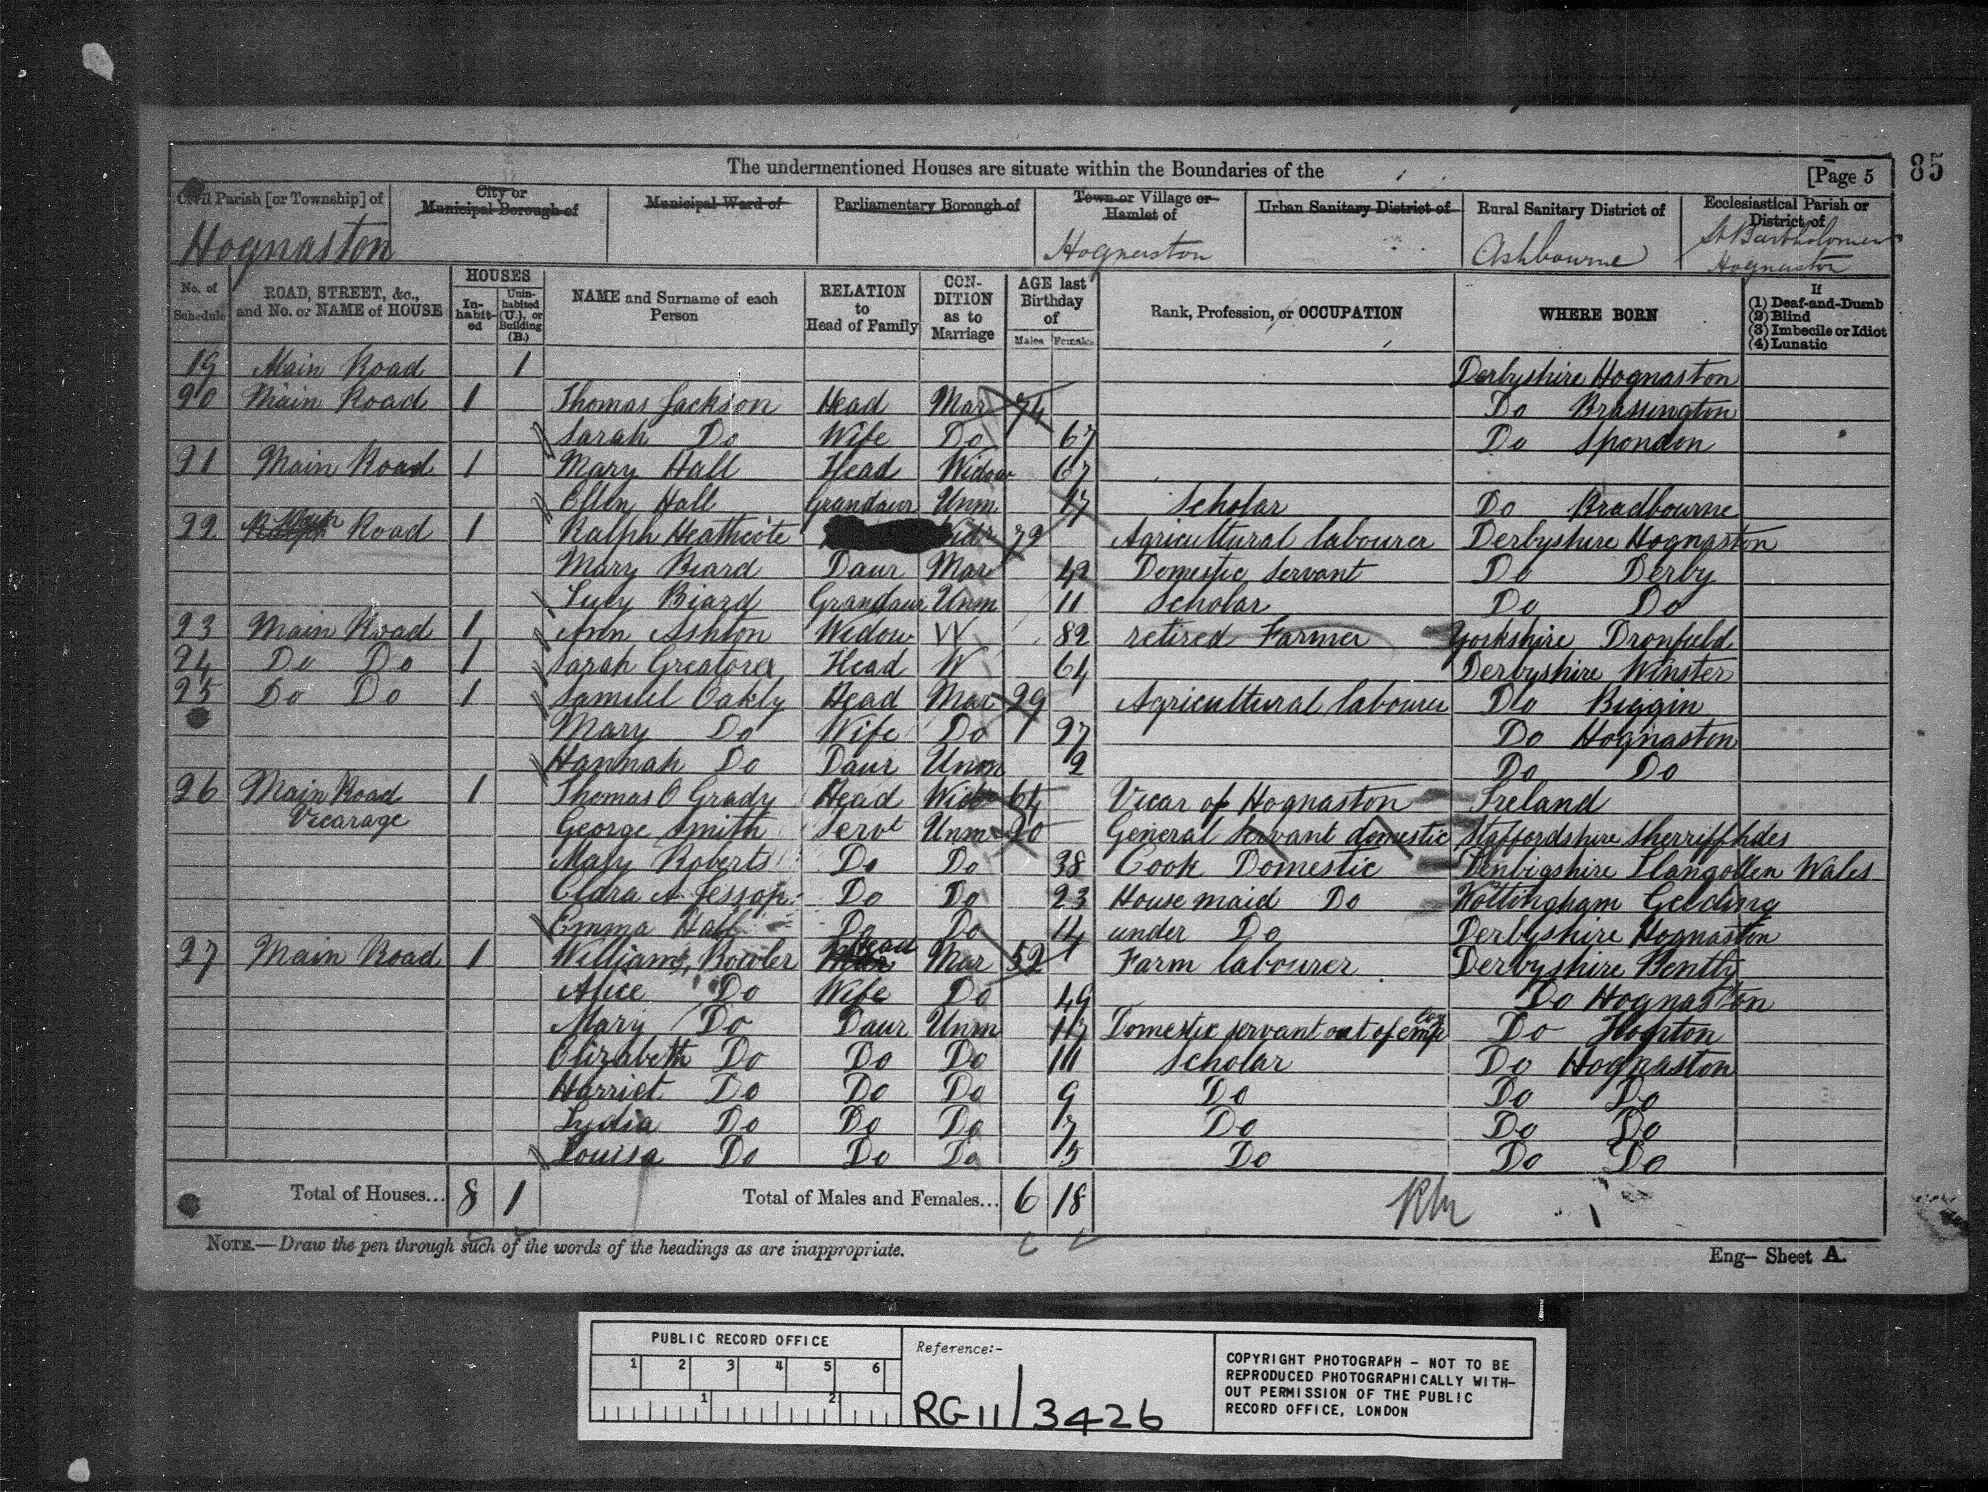 The undermentioned Houses are situate within the Boundaries of the
[Page 5
85
Civil Parish [or Township] of
City or Municipal Borough of
Municipal Ward of
Parliamentary Borough of
Town or Village or Hamlet of
Urban Sanitary District of
Rural Sanitary District of
Ecclesiastical Parish or District of
Hognaston
Hognaston
Ashbourne
St Bartholomew Hognaston
No. of Schedule
ROAD, STREET, &c., and No. or NAME of HOUSE
HOUSES
In-habit-ed
Unin-habited (U.), or Building (B.)
NAME and Surname of each Person
RELATION to Head of Family
CON-DITION as to Marriage
AGE last Birthday of
Males
Females
Rank, Profession, or OCCUPATION
WHERE BORN
If
(1) Deaf-and-Dumb
(2) Blind
(3) Imbecile or Idiot
(4) Lunatic
19 Main Road 1
Derbyshire Hognaston
20 Main Road 1 Thomas Jackson Head Mar 74 Do Brassington
Sarah Do Wife Do 67 Do Spondon
21 Main Road 1 Mary Hall Head Widow 67
Ellen Hall Grandaur Unm 17 Scholar Do Bradbourne
22 Main Road 1 Ralph Heathcote Widr 72 Agricultural labourer Derbyshire Hognaston
Mary Beard Daur Mar 42 Domestic Servant Do Derby
Lucy Biard Grandaur Unm 11 Scholar Do Do
23 Main Road 1 Ann Ashton Widow W 82 retired Farmer Yorkshire Dronfield
24 Do Do 1 Sarah Greatorex Head W 64 Derbyshire Winster
25 Do Do 1 Samuel Oakly Head Mar 29 Agricultural labourer Do Biggin
Mary Do Wife Do 27 Do Hognaston
Hannah Do Daur Unm 2 Do Do
26 Main Road 1 Thomas O Grady Head 64 Vicar of Hognaston Ireland
Vicarage George Smith Servt Unm 20 General Servant domestic Staffordshire Sherriffhales
Mary Roberts Do Do 38 Cook Domestic Denbigshire Llangollen Wales
Clara A. Jessop Do Do 23 House maid Do Nottingham Gedling
Emma Hall Do Do 14 under Do Derbyshire Hognaston
27 Main Road 1 William Bowler Head Mar 52 Farm labourer Derbyshire Bently
Alice Do Wife Do 49 Do Hognaston
Mary Do Daur Unm 17 Domestic servant out of emp Do Hopton
Elizabeth Do Do Do 11 Scholar Do Hognaston
Harriet Do Do Do 9 Do Do Do
Lydia Do Do Do 7 Do Do Do
Louisa Do Do Do 5 Do Do Do
Total of Houses... 8 1 Total of Males and Females... 6 18
NOTE.—Draw the pen through such of the words of the headings as are inappropriate.
Eng— Sheet A.
PUBLIC RECORD OFFICE
1 2 3 4 5 6
1 2
Reference:-
RG 11/3426
COPYRIGHT PHOTOGRAPH - NOT TO BE
REPRODUCED PHOTOGRAPHICALLY WITH-
OUT PERMISSION OF THE PUBLIC
RECORD OFFICE, LONDON